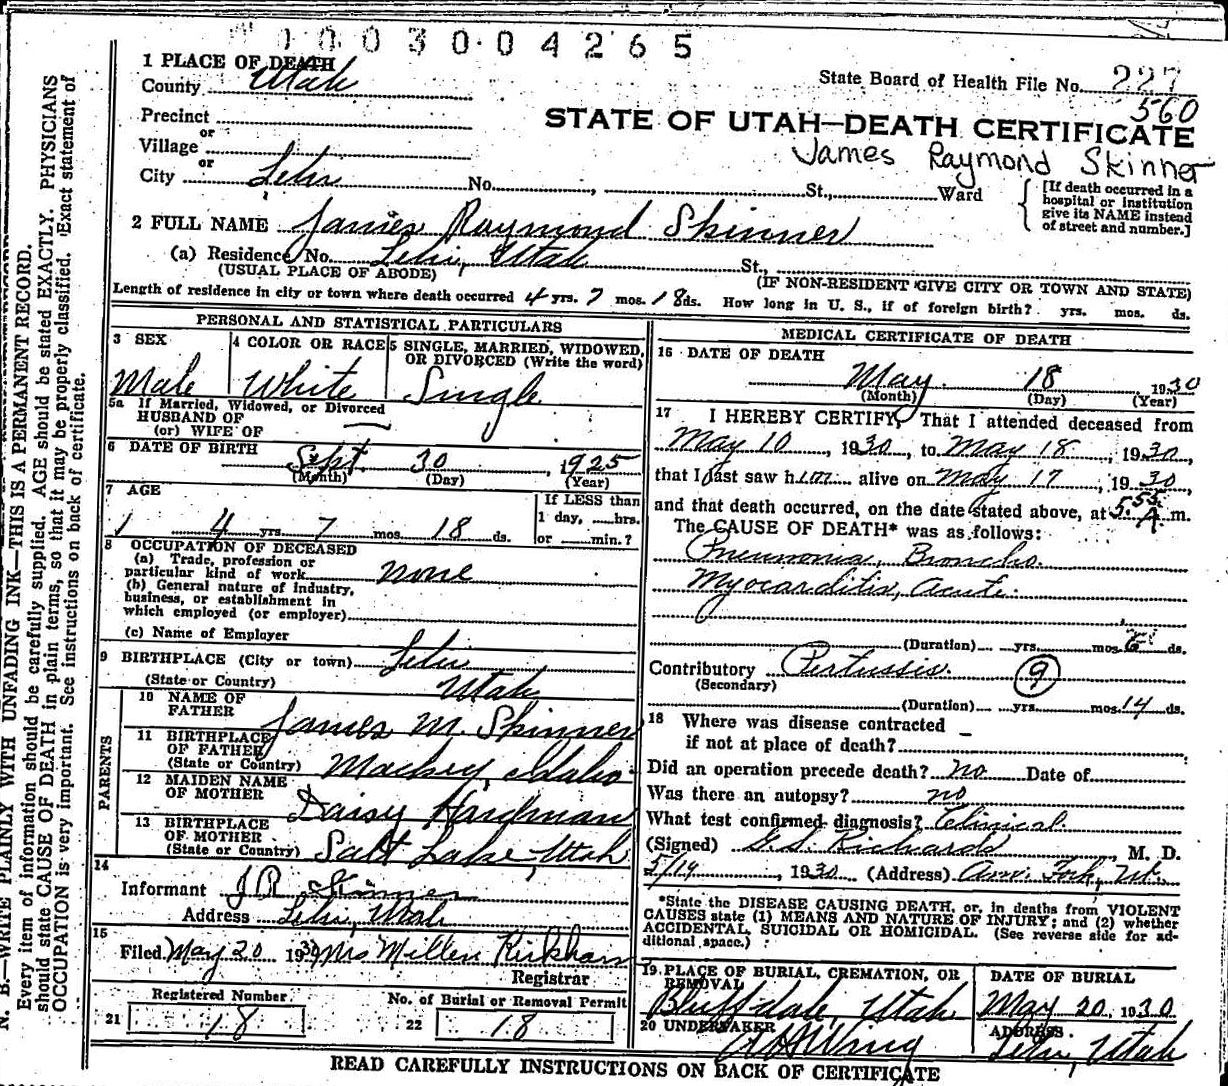 0003004265
1 PLACE OF DEATH
County Utah
State Board of Health File No. 227
560
Precinct
or
Village
or
City Lehi No. , St., Ward
STATE OF UTAH—DEATH CERTIFICATE
James Raymond Skinner
[If death occurred in a
hospital or institution
give its NAME instead
of street and number.]
2 FULL NAME James Raymond Skinner
(a) Residence No. Lehi, Utah St.,
(USUAL PLACE OF ABODE) (IF NON-RESIDENT GIVE CITY OR TOWN AND STATE)
Length of residence in city or town where death occurred 4 yrs. 7 mos. 18 ds. How long in U. S., if of foreign birth? yrs. mos. ds.
PERSONAL AND STATISTICAL PARTICULARS
3 SEX
Male
4 COLOR OR RACE
White
5 SINGLE, MARRIED, WIDOWED,
OR DIVORCED (Write the word)
Single
5a If Married, Widowed, or Divorced
HUSBAND OF
(or) WIFE OF
6 DATE OF BIRTH
Sept. 30, 1925
(Month) (Day) (Year)
7 AGE
4 yrs. 7 mos. 18 ds.
If LESS than
1 day, hrs.
or min.?
8 OCCUPATION OF DECEASED
(a) Trade, profession or
particular kind of work none
(b) General nature of industry,
business, or establishment in
which employed (or employer)
(c) Name of Employer
9 BIRTHPLACE (City or town) Lehi
(State or Country) Utah
PARENTS
10 NAME OF
FATHER James M. Skinner
11 BIRTHPLACE
OF FATHER
(State or Country) Mackey, Idaho
12 MAIDEN NAME
OF MOTHER Daisy Hardman
13 BIRTHPLACE
OF MOTHER
(State or Country) Salt Lake, Utah
14
Informant J R Skinner
Address Lehi, Utah
15
Filed May 20 1930 Mrs Millen Kirkham
Registrar
Registered Number
21 18
No. of Burial or Removal Permit
22 18
MEDICAL CERTIFICATE OF DEATH
16 DATE OF DEATH
May 18 1930
(Month) (Day) (Year)
17 I HEREBY CERTIFY, That I attended deceased from
May 10, 1930, to May 18, 1930,
that I last saw him alive on May 17, 1930,
and that death occurred, on the date stated above, at 5.55 A m.
The CAUSE OF DEATH* was as follows:
Pneumonia, Broncho.
Myocarditis, Acute.
(Duration) yrs. mos. 6 ds.
Contributory Pertussis. 9
(Secondary)
(Duration) yrs. mos. 14 ds.
18 Where was disease contracted
if not at place of death?
Did an operation precede death? no Date of
Was there an autopsy? no
What test confirmed diagnosis? Clinical.
(Signed) G.S. Richards, M. D.
5/19, 1930 (Address) Am. Fork, Ut.
*State the DISEASE CAUSING DEATH, or, in deaths from VIOLENT
CAUSES state (1) MEANS AND NATURE OF INJURY; and (2) whether
ACCIDENTAL, SUICIDAL OR HOMICIDAL. (See reverse side for ad-
ditional space.)
19 PLACE OF BURIAL, CREMATION, OR
REMOVAL
Bluffdale, Utah
DATE OF BURIAL
May 20, 1930
20 UNDERTAKER
ADDRESS
Lehi, Utah
READ CAREFULLY INSTRUCTIONS ON BACK OF CERTIFICATE
N. B.—WRITE PLAINLY WITH UNFADING INK—THIS IS A PERMANENT RECORD.
Every item of information should be carefully supplied. AGE should be stated EXACTLY. PHYSICIANS
should state CAUSE OF DEATH in plain terms, so that it may be properly classified. Exact statement of
OCCUPATION is very important. See instructions on back of certificate.